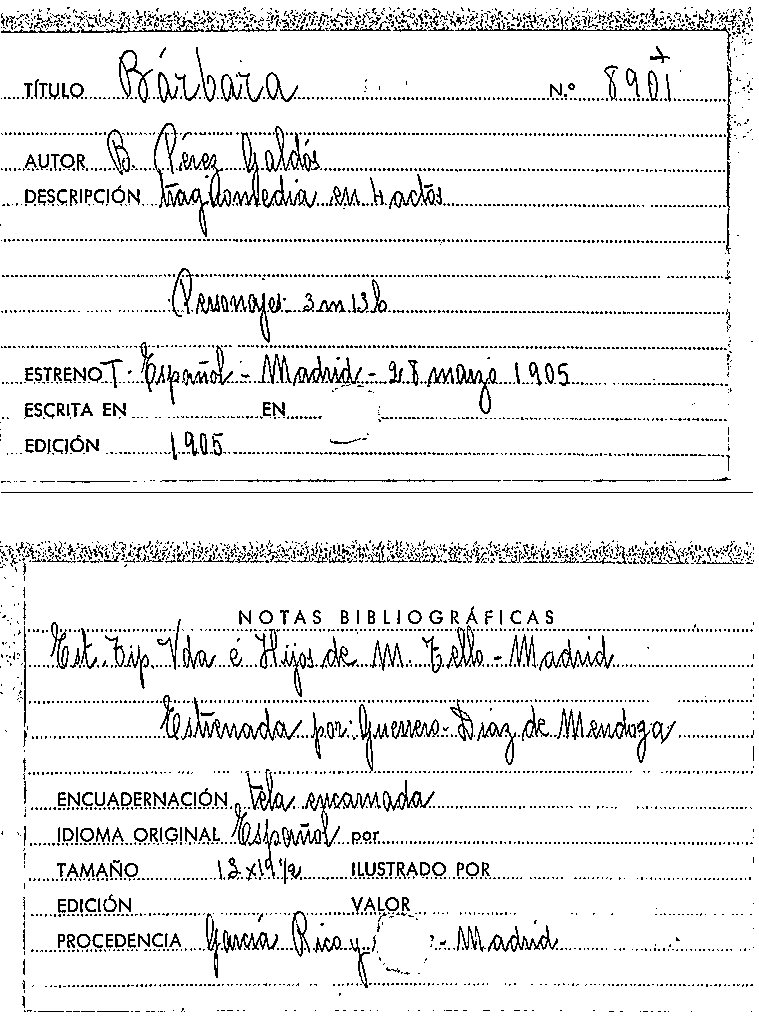 TÍTULO Bárbara N.º 8901
AUTOR B. Pérez Galdós
DESCRIPCIÓN tragicomedia en 4 actos
Personajes- 3 m 13 h
ESTRENO T. Español - Madrid - 28 marzo 1905
ESCRITA EN EN
EDICIÓN 1905
NOTAS BIBLIOGRÁFICAS
Est. Tip. Vda é Hijos de M. Tello - Madrid
Estrenada por: Guerrero- Díaz de Mendoza
ENCUADERNACIÓN tela encarnada
IDIOMA ORIGINAL Español por
TAMAÑO 13 x 19 1/2 ILUSTRADO POR
EDICIÓN VALOR
PROCEDENCIA García Rico y - Madrid